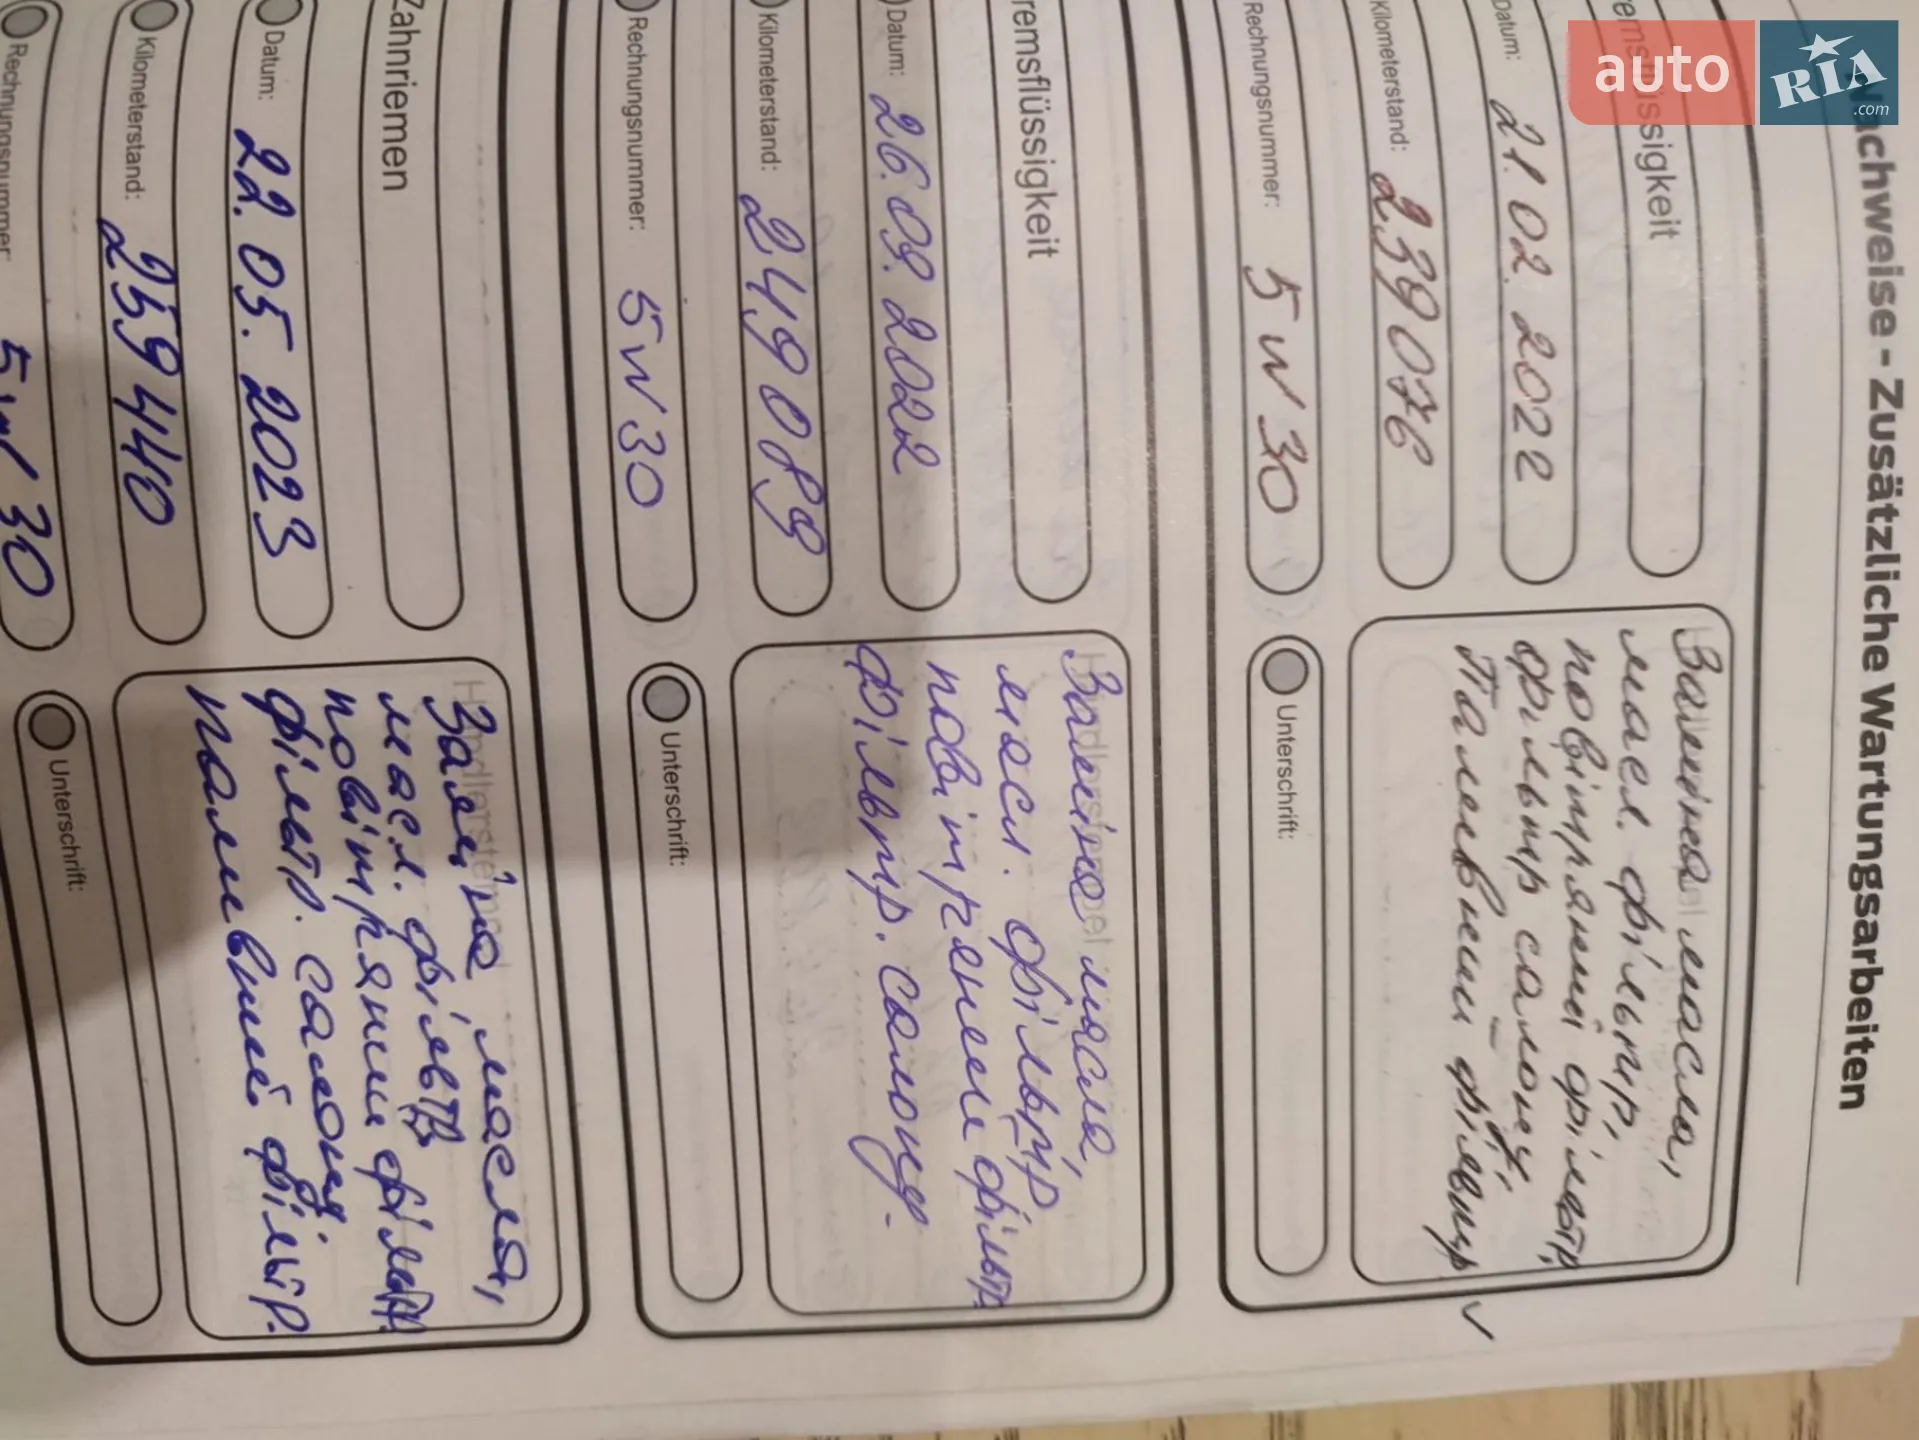 auto
RIA
.com
Nachweise - Zusätzliche Wartungsarbeiten
Datum: 21.02.2022
Kilometerstand: 239076
Rechnungsnummer: 5W30
Заміна масла,
масл. фільтр,
повітряний фільтр,
фільтр салону,
Паливний фільтр
Unterschrift:
remsflüssigkeit
Datum: 26.09.2022
Kilometerstand: 249089
Rechnungsnummer: 5W30
Заміна масла,
масл. фільтр
повітряний фільтр.
фільтр. салону.
Unterschrift:
Zahnriemen
Datum: 22.05.2023
Kilometerstand: 259440
Rechnungsnummer: 5W30
Заміна масла,
масл. фільтр
повітряний фільтр.
фільтр. салону
паливний фільтр.
Unterschrift: